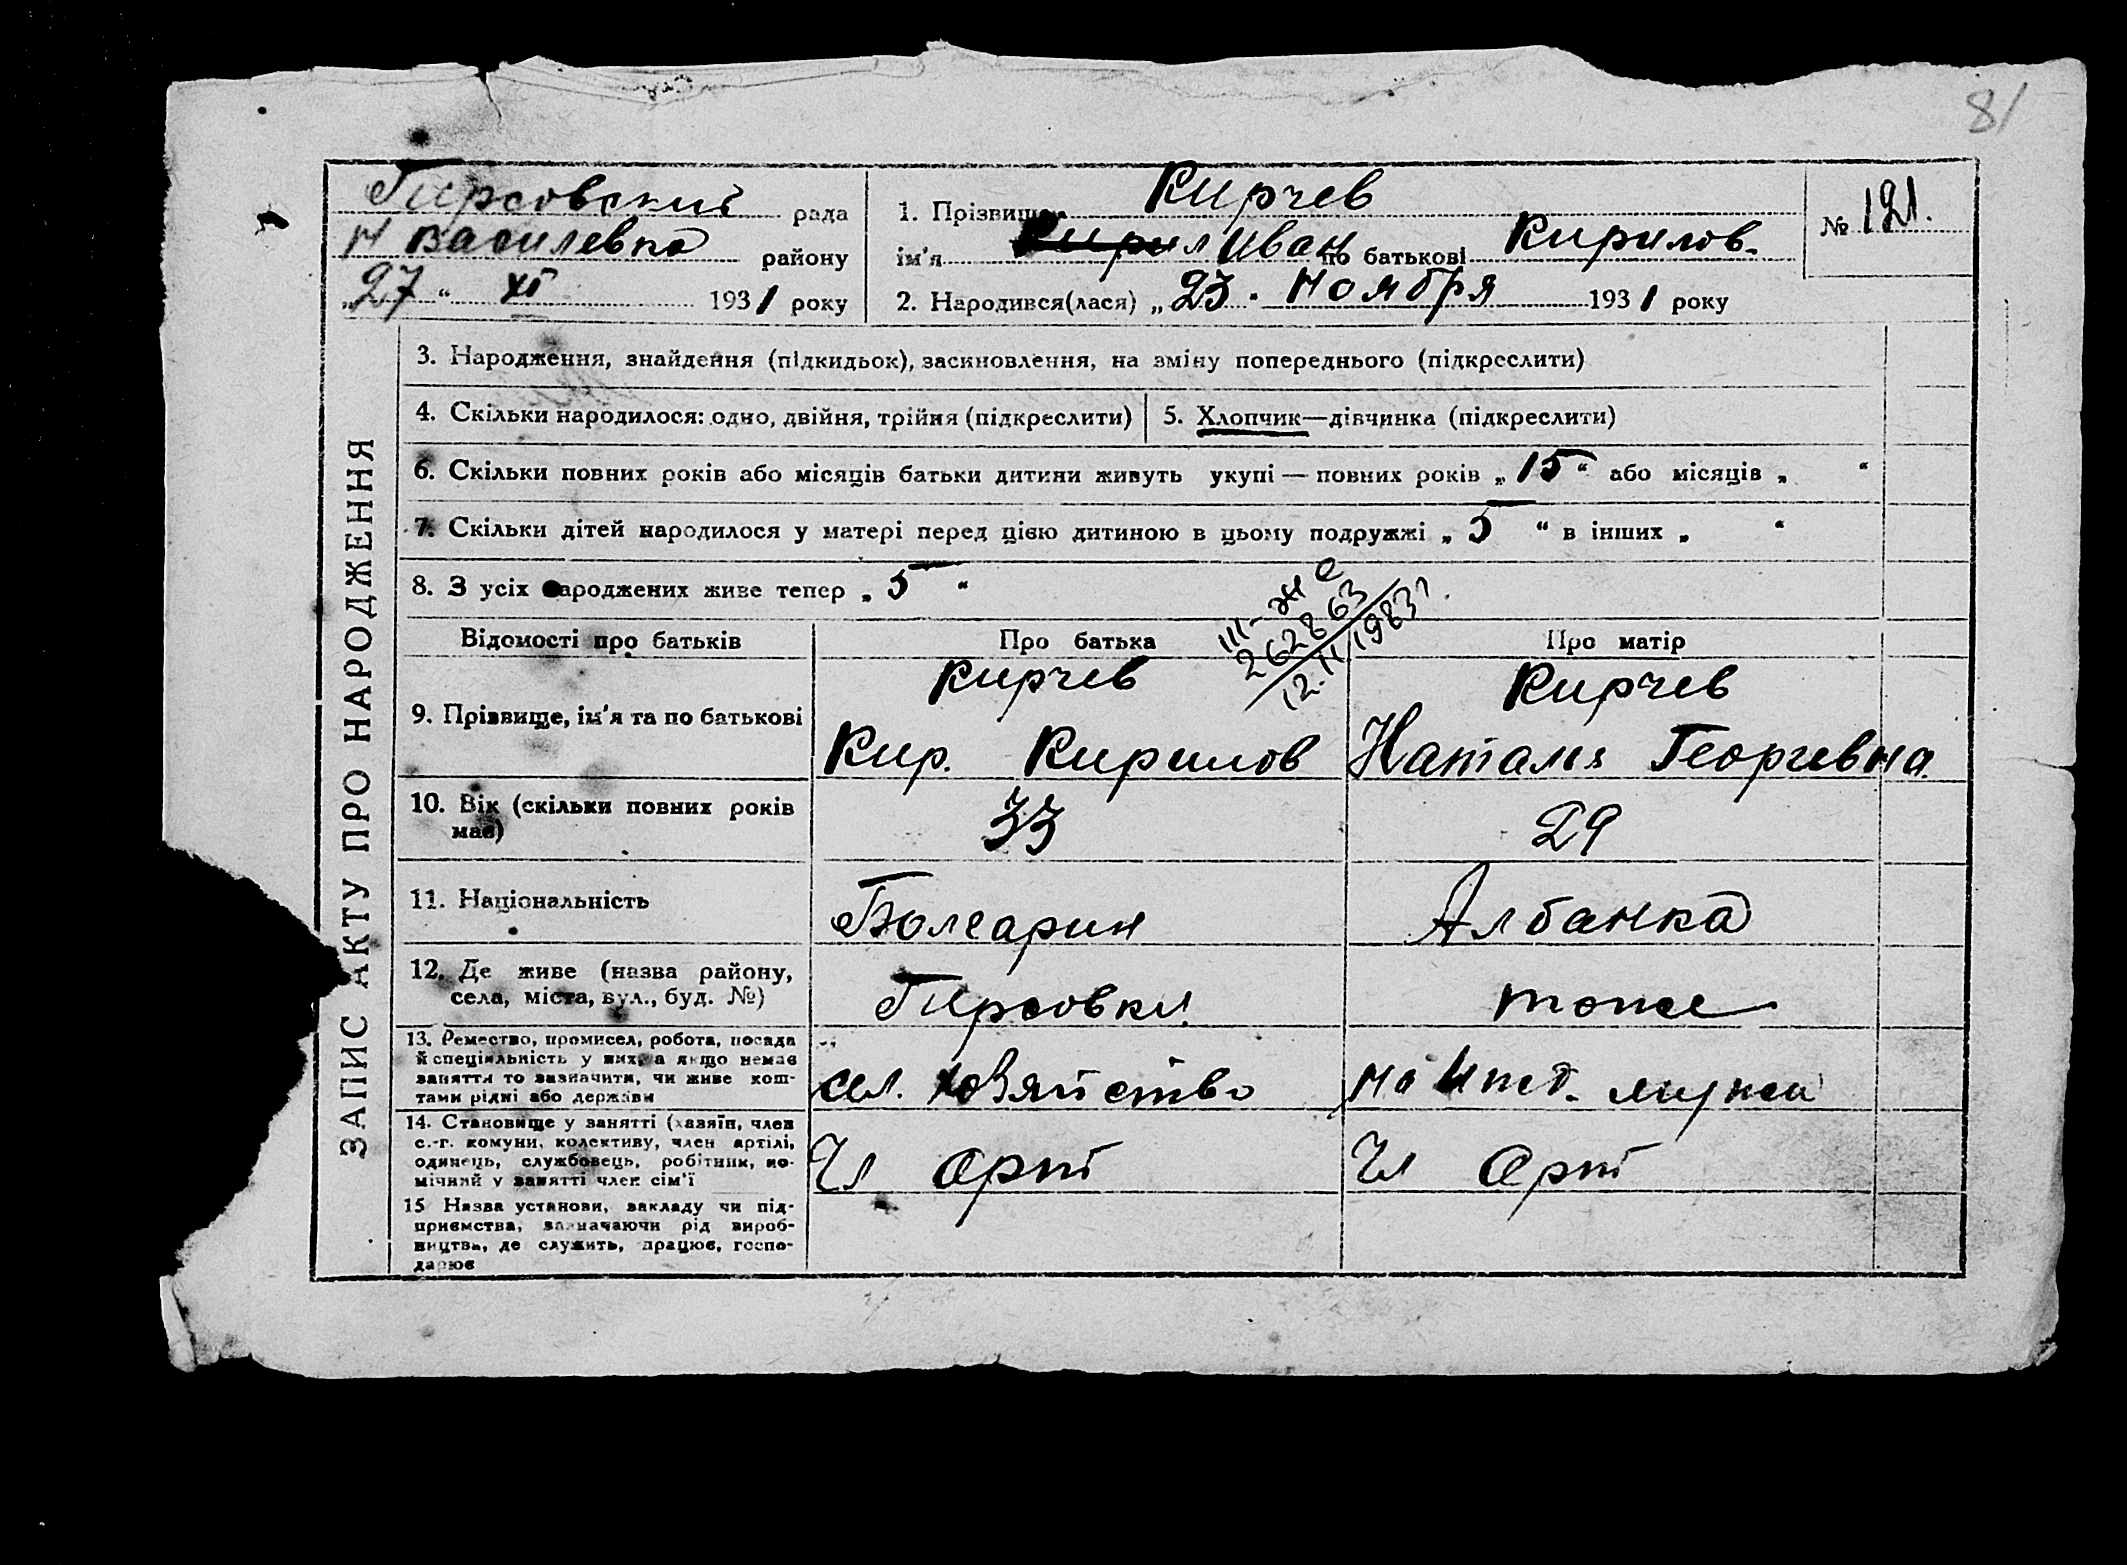 81
Гирсовский рада
Н Василевка району
„27“ XI 1931 року
1. Прізвище Кирчев
ім'я Кирил Иван по батькові Кирилов.
2. Народився(лася) „23. Ноября 1931 року
№ 121.
ЗАПИС АКТУ ПРО НАРОДЖЕННЯ
3. Народження, знайдення (підкидьок), засиновлення, на зміну попереднього (підкреслити)
4. Скільки народилося: одно, двійня, трійня (підкреслити)
5. Хлопчик—дівчинка (підкреслити)
6. Скільки повних років або місяців батьки дитини живуть укупі — повних років „15“ або місяців „ “
7. Скільки дітей народилося у матері перед цією дитиною в цьому подружжі „5“ в інших „ “
8. З усіх народжених живе тепер „5“
III-ЖС
262863
12.II 1983г.
Відомості про батьків Про батька Про матір
9. Прізвище, ім'я та по батькові
Кирчев
Кир. Кирилов
Кирчев
Наталя Георгевна.
10. Вік (скільки повних років
має)
33
29
11. Національність
Болгарин
Албанка
12. Де живе (назва району,
села, міста, вул., буд. №)
Гирсовка
тоже
13. Ремество, промисел, робота, посада
й спеціяльність у них, а якщо немає
заняття то зазначити, чи живе кош-
тами рідні або держави
сел. хозяйство
на ижд. мужа
14. Становище у занятті (хазяїн, член
с.-г. комуни, колективу, член артілі,
одинець, службовець, робітник, по-
мічний у занятті член сім'ї
Чл Арт
Чл Арт
15 Назва установи, закладу чи під-
приємства, зазначаючи рід вироб-
ництва, де служить, працює, госпо-
дарює